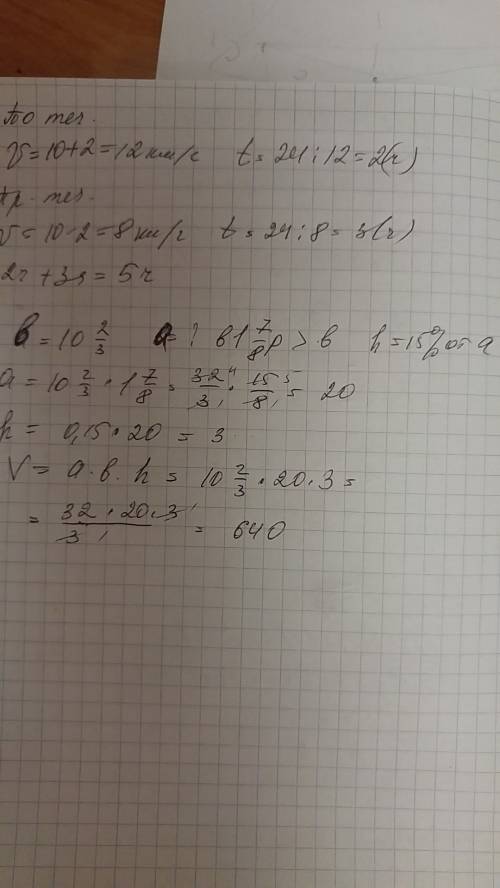 По теч.
V = 10+2 = 12 км/ч t = 24 : 12 = 2(ч)
Пр. теч.
V = 10-2 = 8 км/ч t = 24 : 8 = 3(ч)
2ч + 3ч = 5ч
b = 10 2/3 a = ? в 1 7/8 р > b h = 15% от a
a = 10 2/3 · 1 7/8 = 32 4/3 1 · 15 5/8 1 = 20
h = 0,15 · 20 = 3
V = a · b · h = 10 2/3 · 20 · 3 =
= 32 · 20 · 3 1/3 1 = 640